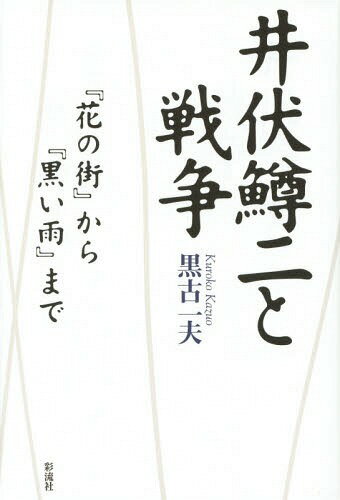 井伏鱒二と
戦争
『花の街』から
『黒い雨』まで
黒古一夫
Kuroko Kazuo
彩流社